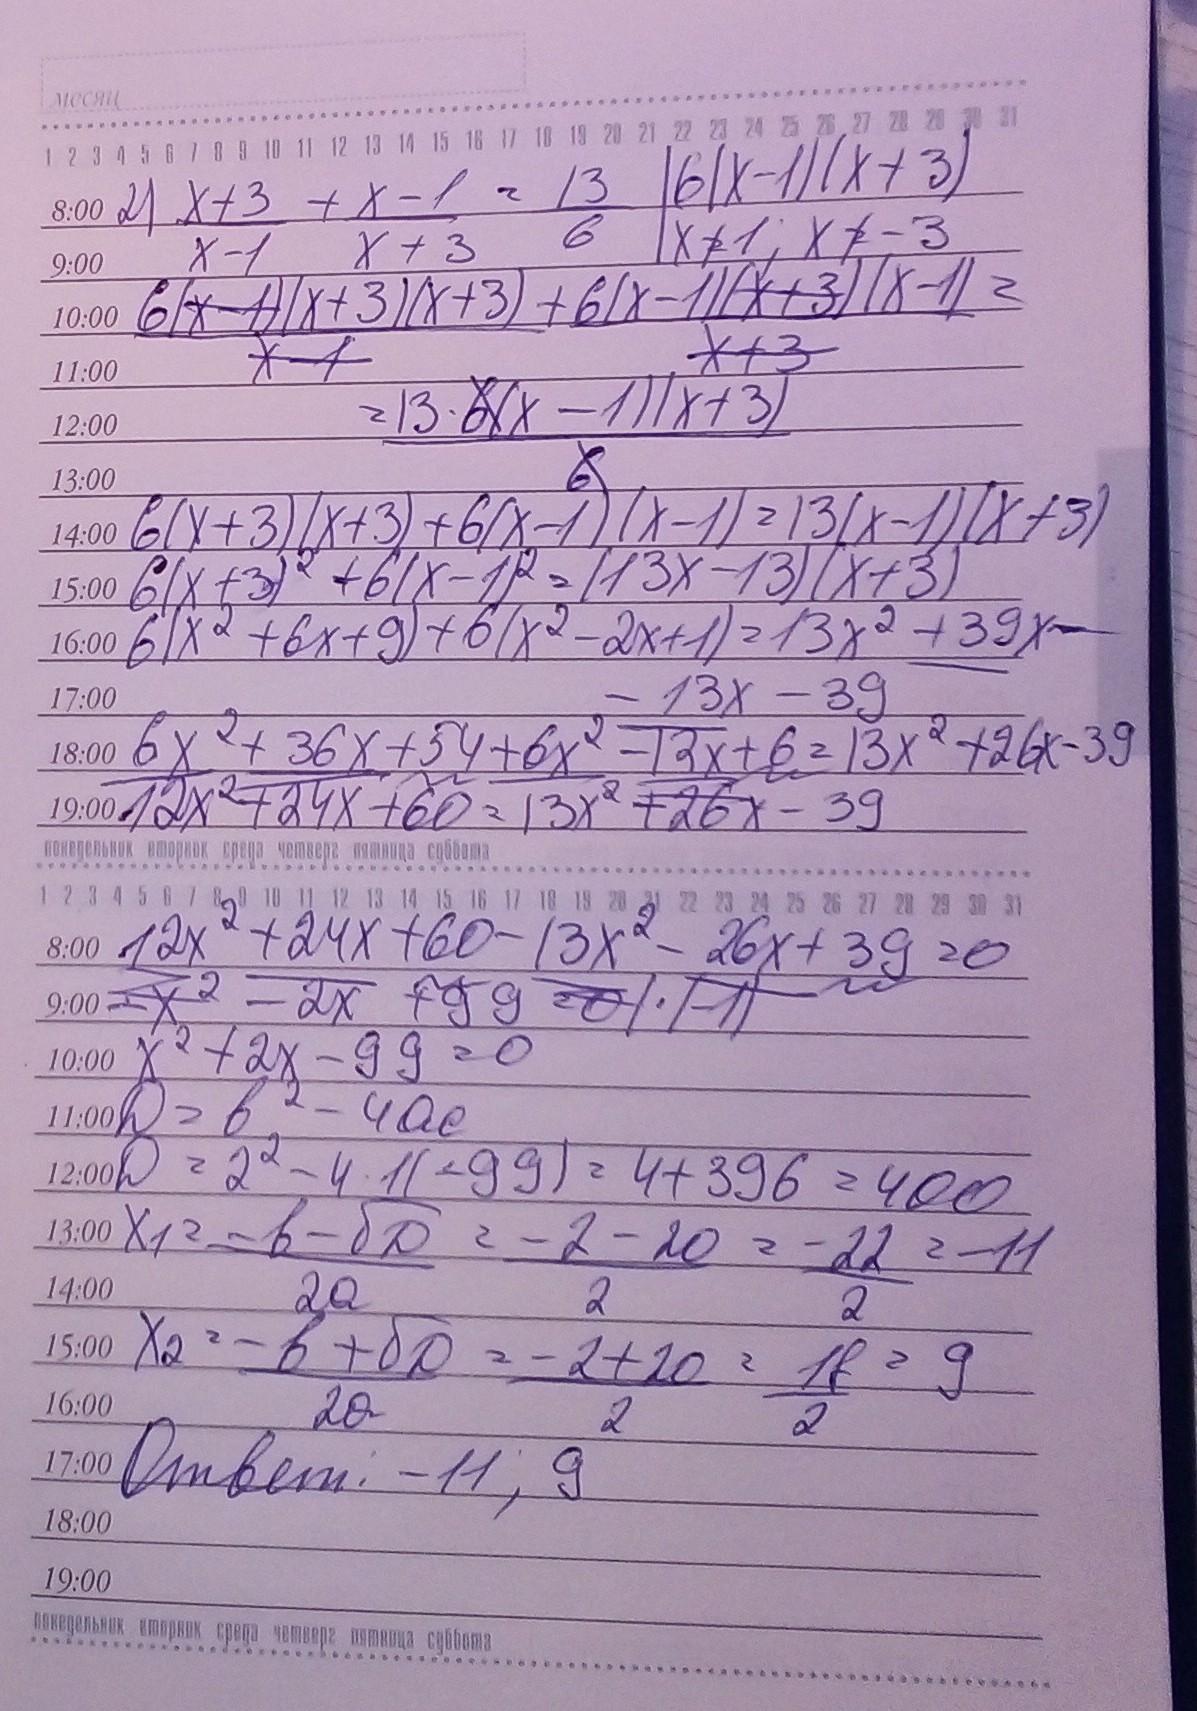 месяц
1 2 3 4 5 6 7 8 9 10 11 12 13 14 15 16 17 18 19 20 21 22 23 24 25 26 27 28 29 30 31
8:00 2) x+3 + x-1 = 13 |6(x-1)(x+3)
9:00 x-1 x+3 6 |x≠1; x≠-3
10:00 6(x-1)(x+3)(x+3) + 6(x-1)(x+3)(x-1) =
11:00 x-1 x+3
12:00 = 13·6(x-1)(x+3)
13:00 6
14:00 6(x+3)(x+3)+6(x-1)(x-1)=13(x-1)(x+3)
15:00 6(x+3)²+6(x-1)²=(13x-13)(x+3)
16:00 6(x²+6x+9)+6(x²-2x+1)=13x²+39x-
17:00 -13x-39
18:00 6x²+36x+54+6x²-12x+6=13x²+26x-39
19:00 12x²+24x+60=13x²+26x-39
понедельник вторник среда четверг пятница суббота
1 2 3 4 5 6 7 8 9 10 11 12 13 14 15 16 17 18 19 20 21 22 23 24 25 26 27 28 29 30 31
8:00 12x²+24x+60-13x²-26x+39=0
9:00 -x²-2x+99=0|·(-1)
10:00 x²+2x-99=0
11:00 D=b²-4ac
12:00 D=2²-4·1(-99)=4+396=400
13:00 x₁= -b-√D = -2-20 = -22 = -11
14:00 2a 2 2
15:00 x₂= -b+√D = -2+20 = 18 = 9
16:00 2a 2 2
17:00 Ответ: -11; 9
18:00
19:00
понедельник вторник среда четверг пятница суббота